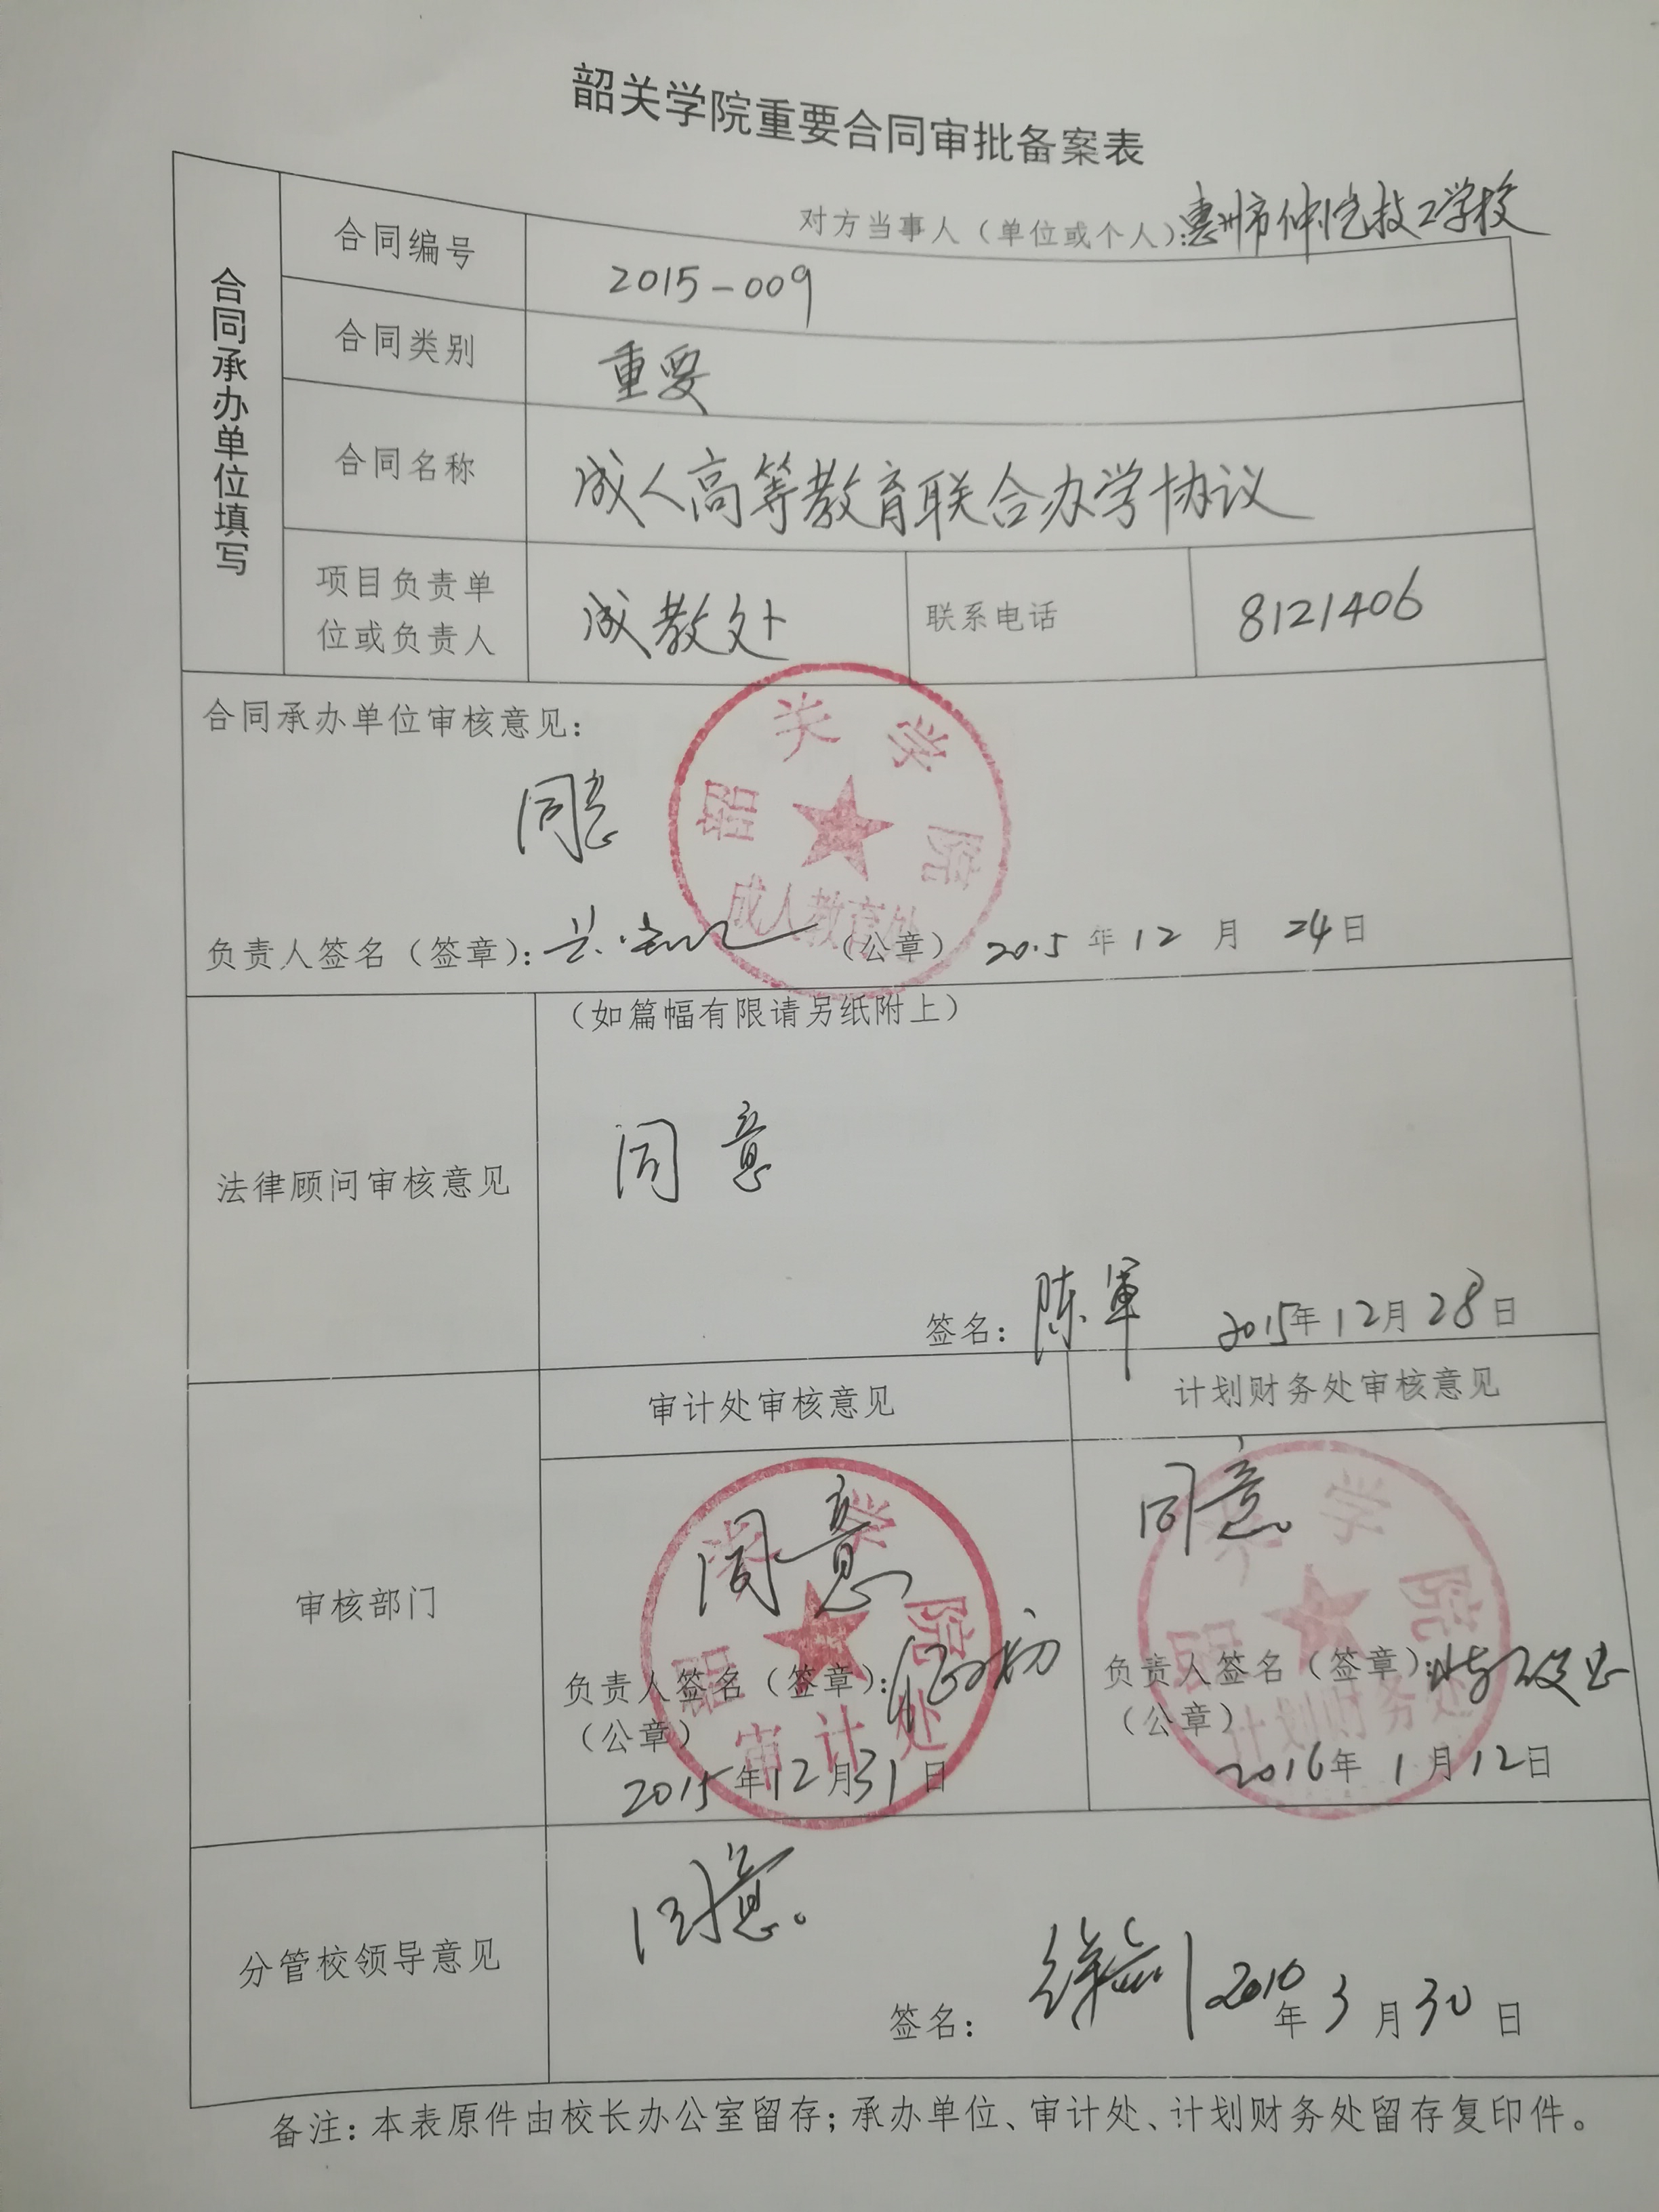 韶关学院重要合同审批备案表
对方当事人（单位或个人）:惠州市仲恺技工学校
合同承办单位填写
合同编号 2015-009
合同类别 重要
合同名称 成人高等教育联合办学协议
项目负责单位或负责人 成教处 联系电话 8121406
合同承办单位审核意见：
同意
韶关学院
成人教育处
负责人签名（签章）： （公章） 2015年12月24日
（如篇幅有限请另纸附上）
法律顾问审核意见
同意
签名： 陈军 2015年12月28日
审核部门
审计处审核意见 计划财务处审核意见
同意 同意
韶关学院 韶关学院
负责人签名（签章）： 负责人签名（签章）：
（公章） （公章）
审计处 计划财务处
2015年12月31日 2016年1月12日
分管校领导意见
同意。
签名： 2016年3月30日
备注：本表原件由校长办公室留存；承办单位、审计处、计划财务处留存复印件。